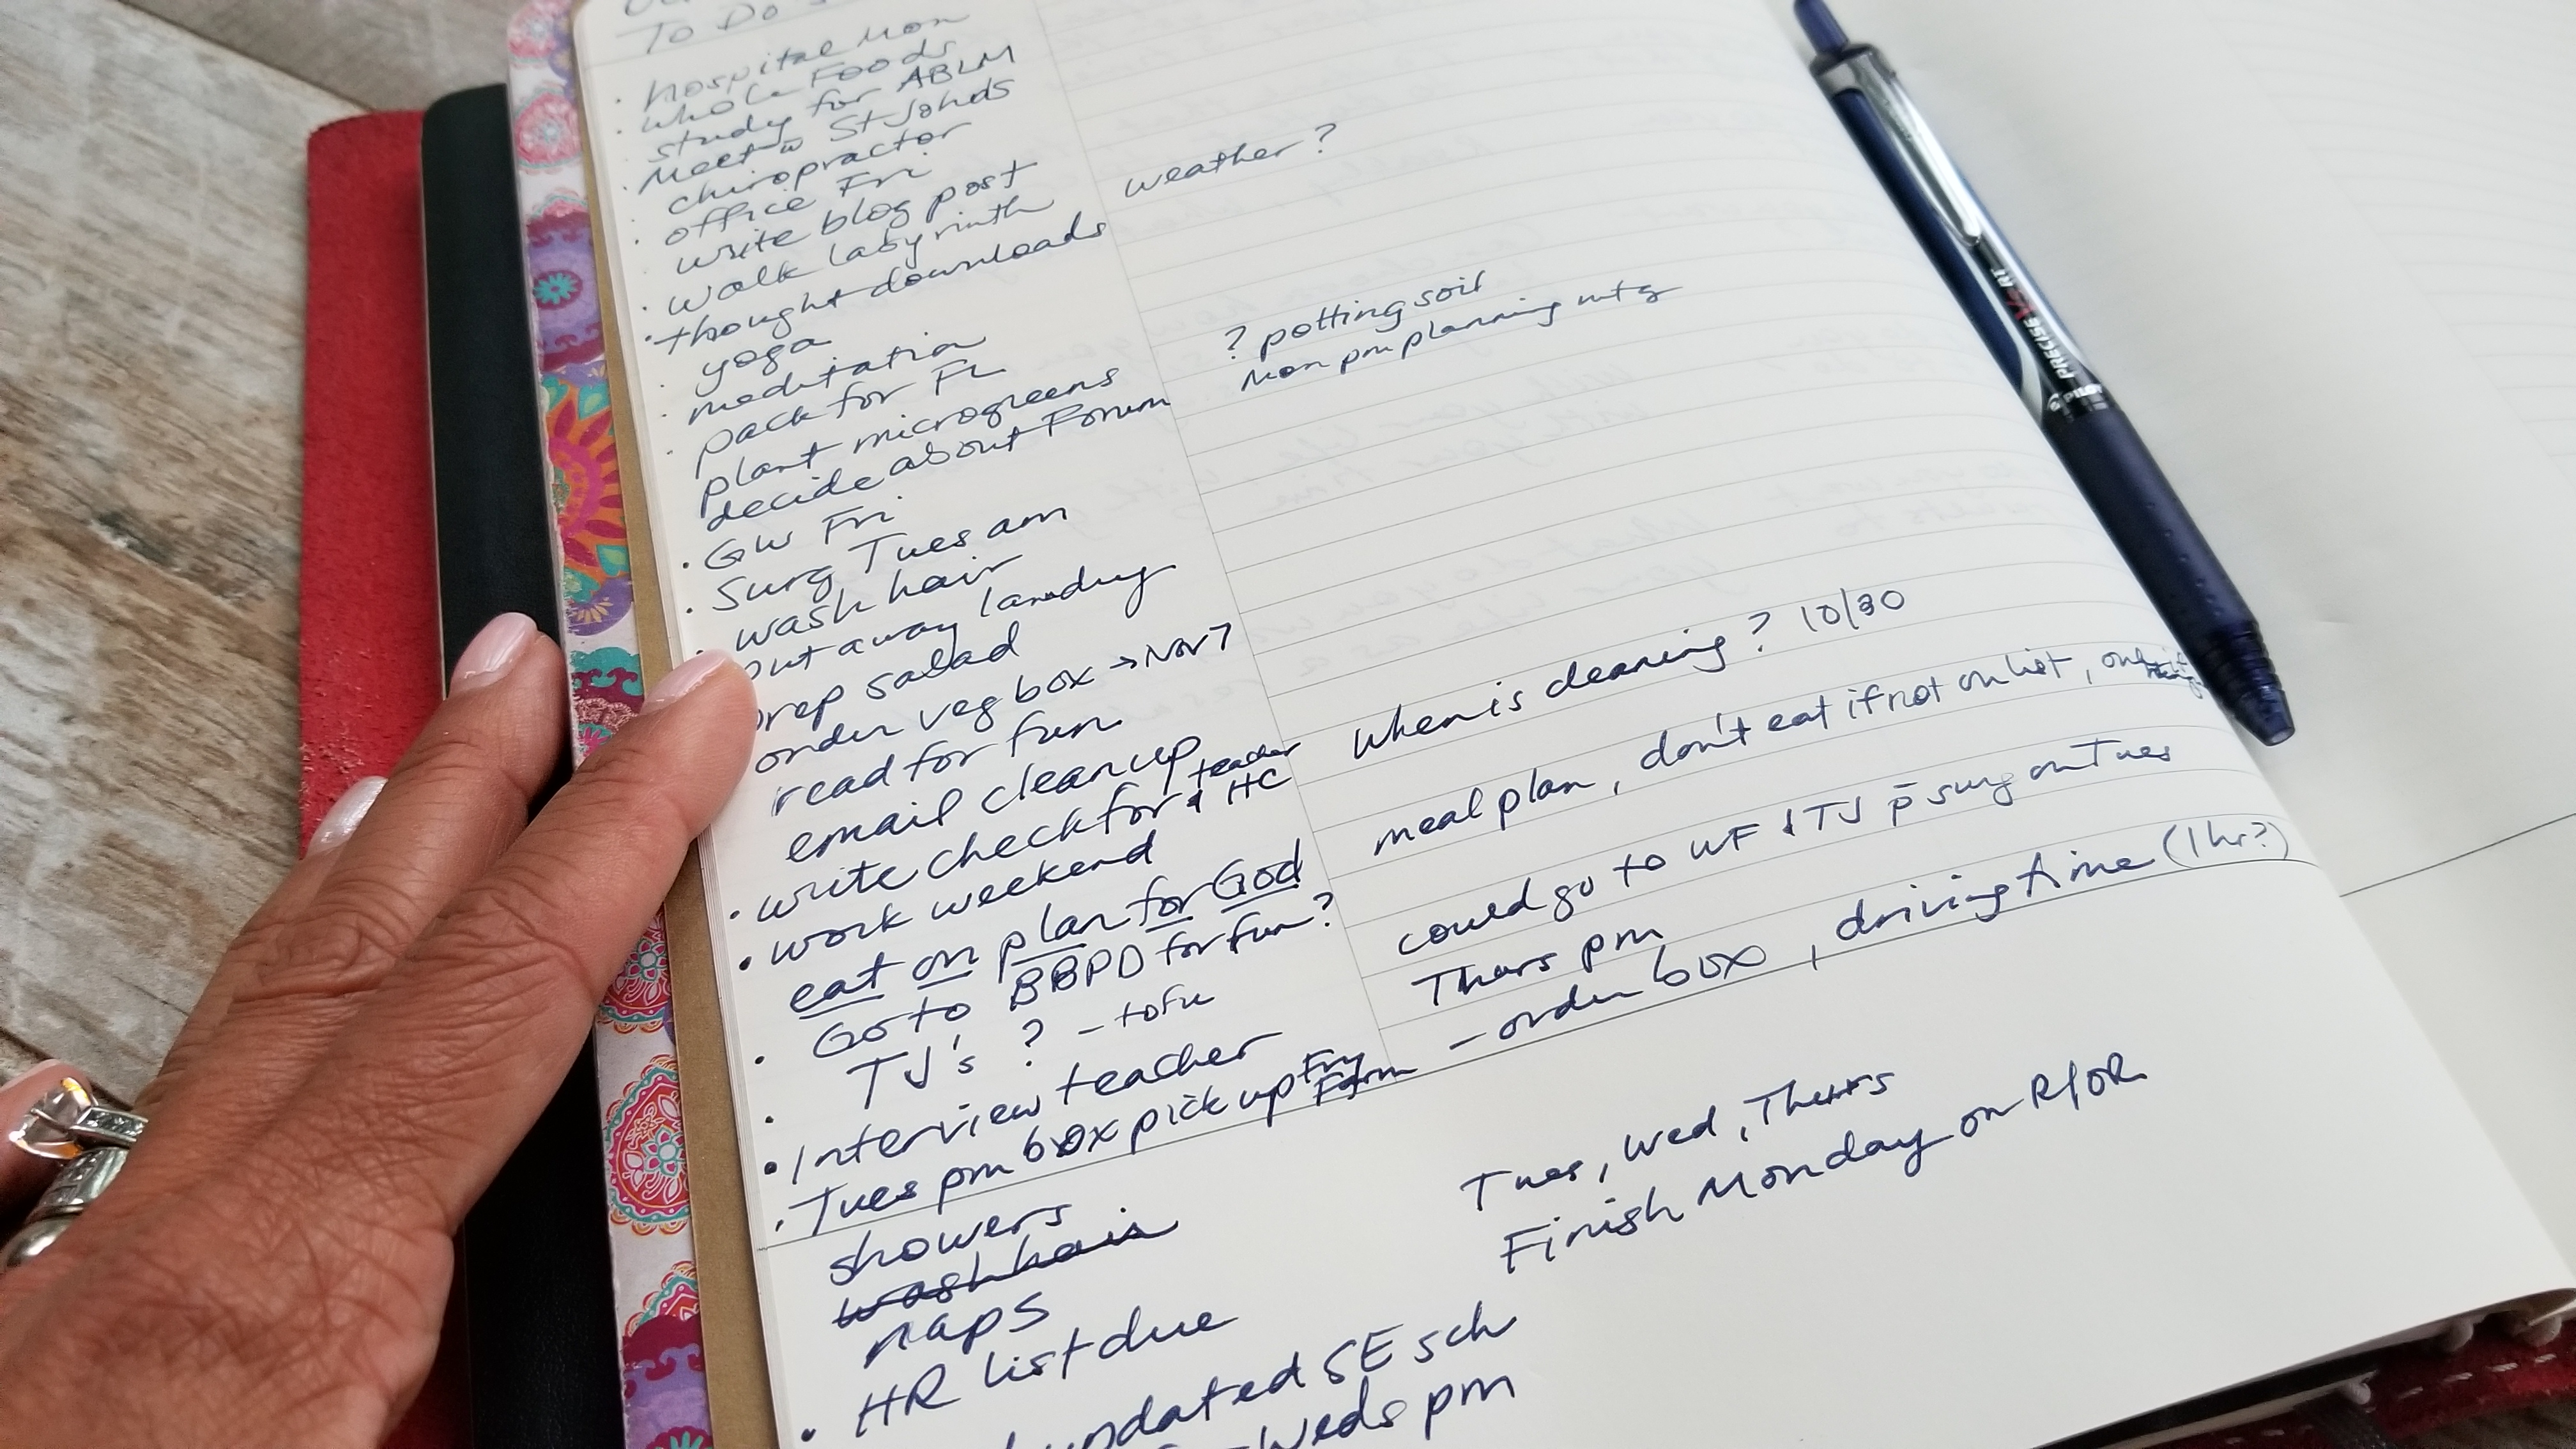 To Do
· hospital Mon
· whole Foods
· study for ABLM
· Meet w St Johds
chiropractor
· office Fri
write blog post
· walk labyrinth
weather ?
· thought downloads
yoga
· meditation
· pack for FL
· plant microgreens
? potting soil
decide about Forum
Mon pm planning mtg
· GW Fri
· Surg Tues am
· wash hair
put away laundry
prep salad
order veg box → Nov 7
read for fun
email clean up
when is cleaning ? 10/30
· write check for teacher & HC
· work weekend
eat on plan for God
meal plan, don't eat if not on list,
· Go to BBPD for fun?
TJ's ? - tofu
could go to WF & TJ p̄ surg on Tues
· Interview teacher
Thurs pm
· Tues pm box pick up Fry Farm
- order box, driving time (1 hr?)
showers
wash hair
naps
Tues, Wed, Thurs
Finish Monday on R/OR
· HR list due
updated SE sch
Weds pm
PILOT PRECISE V5 RT